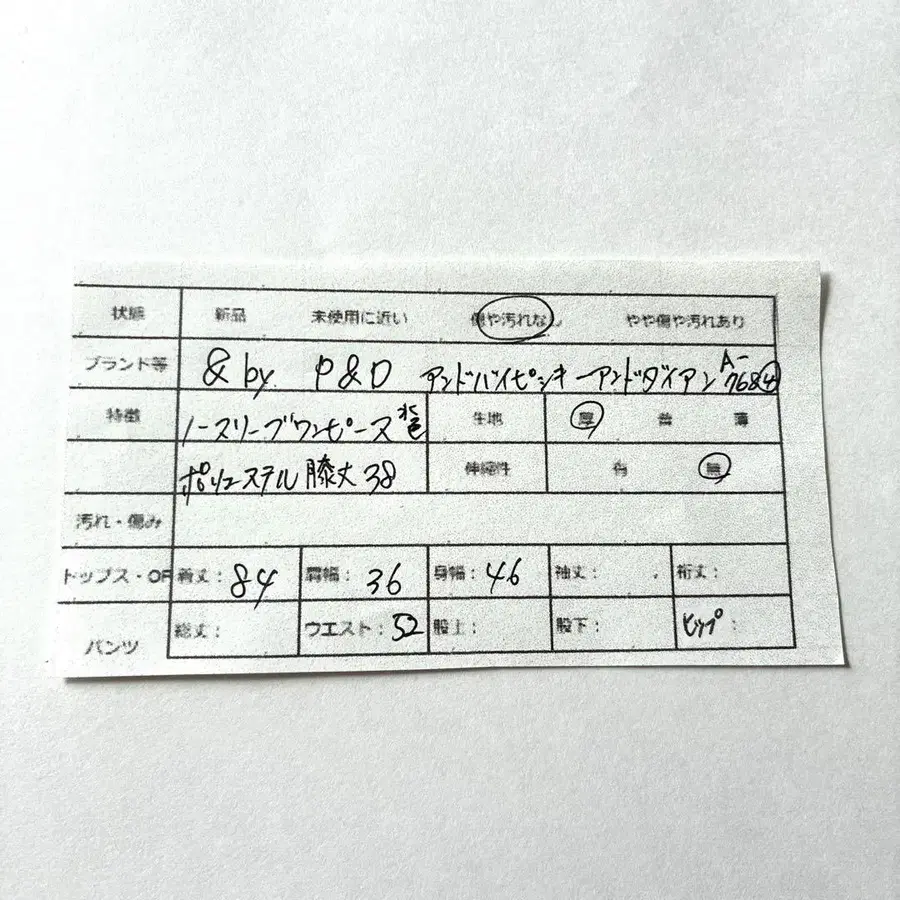 状態 新品 未使用に近い 傷や汚れなし やや傷や汚れあり
ブランド等 & by P&D アンドバイピンキーアンドダイアン A-7684
特徴 ノースリーブワンピース 水色 生地 厚 普 薄
ポリエステル 膝丈 38 伸縮性 有 無
汚れ・傷み
トップス・OP 着丈: 84 肩幅: 36 身幅: 46 袖丈: 裄丈:
パンツ 総丈: ウエスト: 52 股上: 股下: ヒップ: